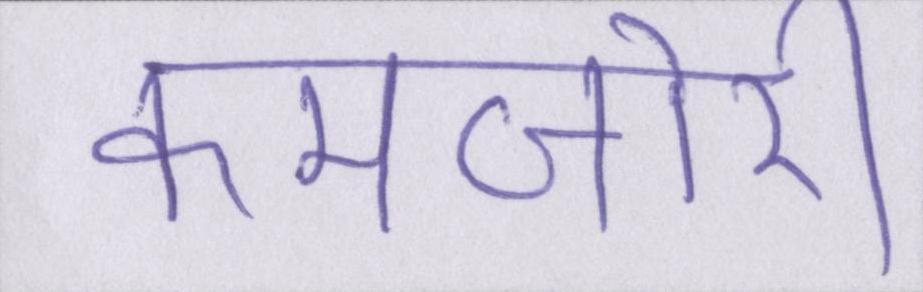 कमजोरी